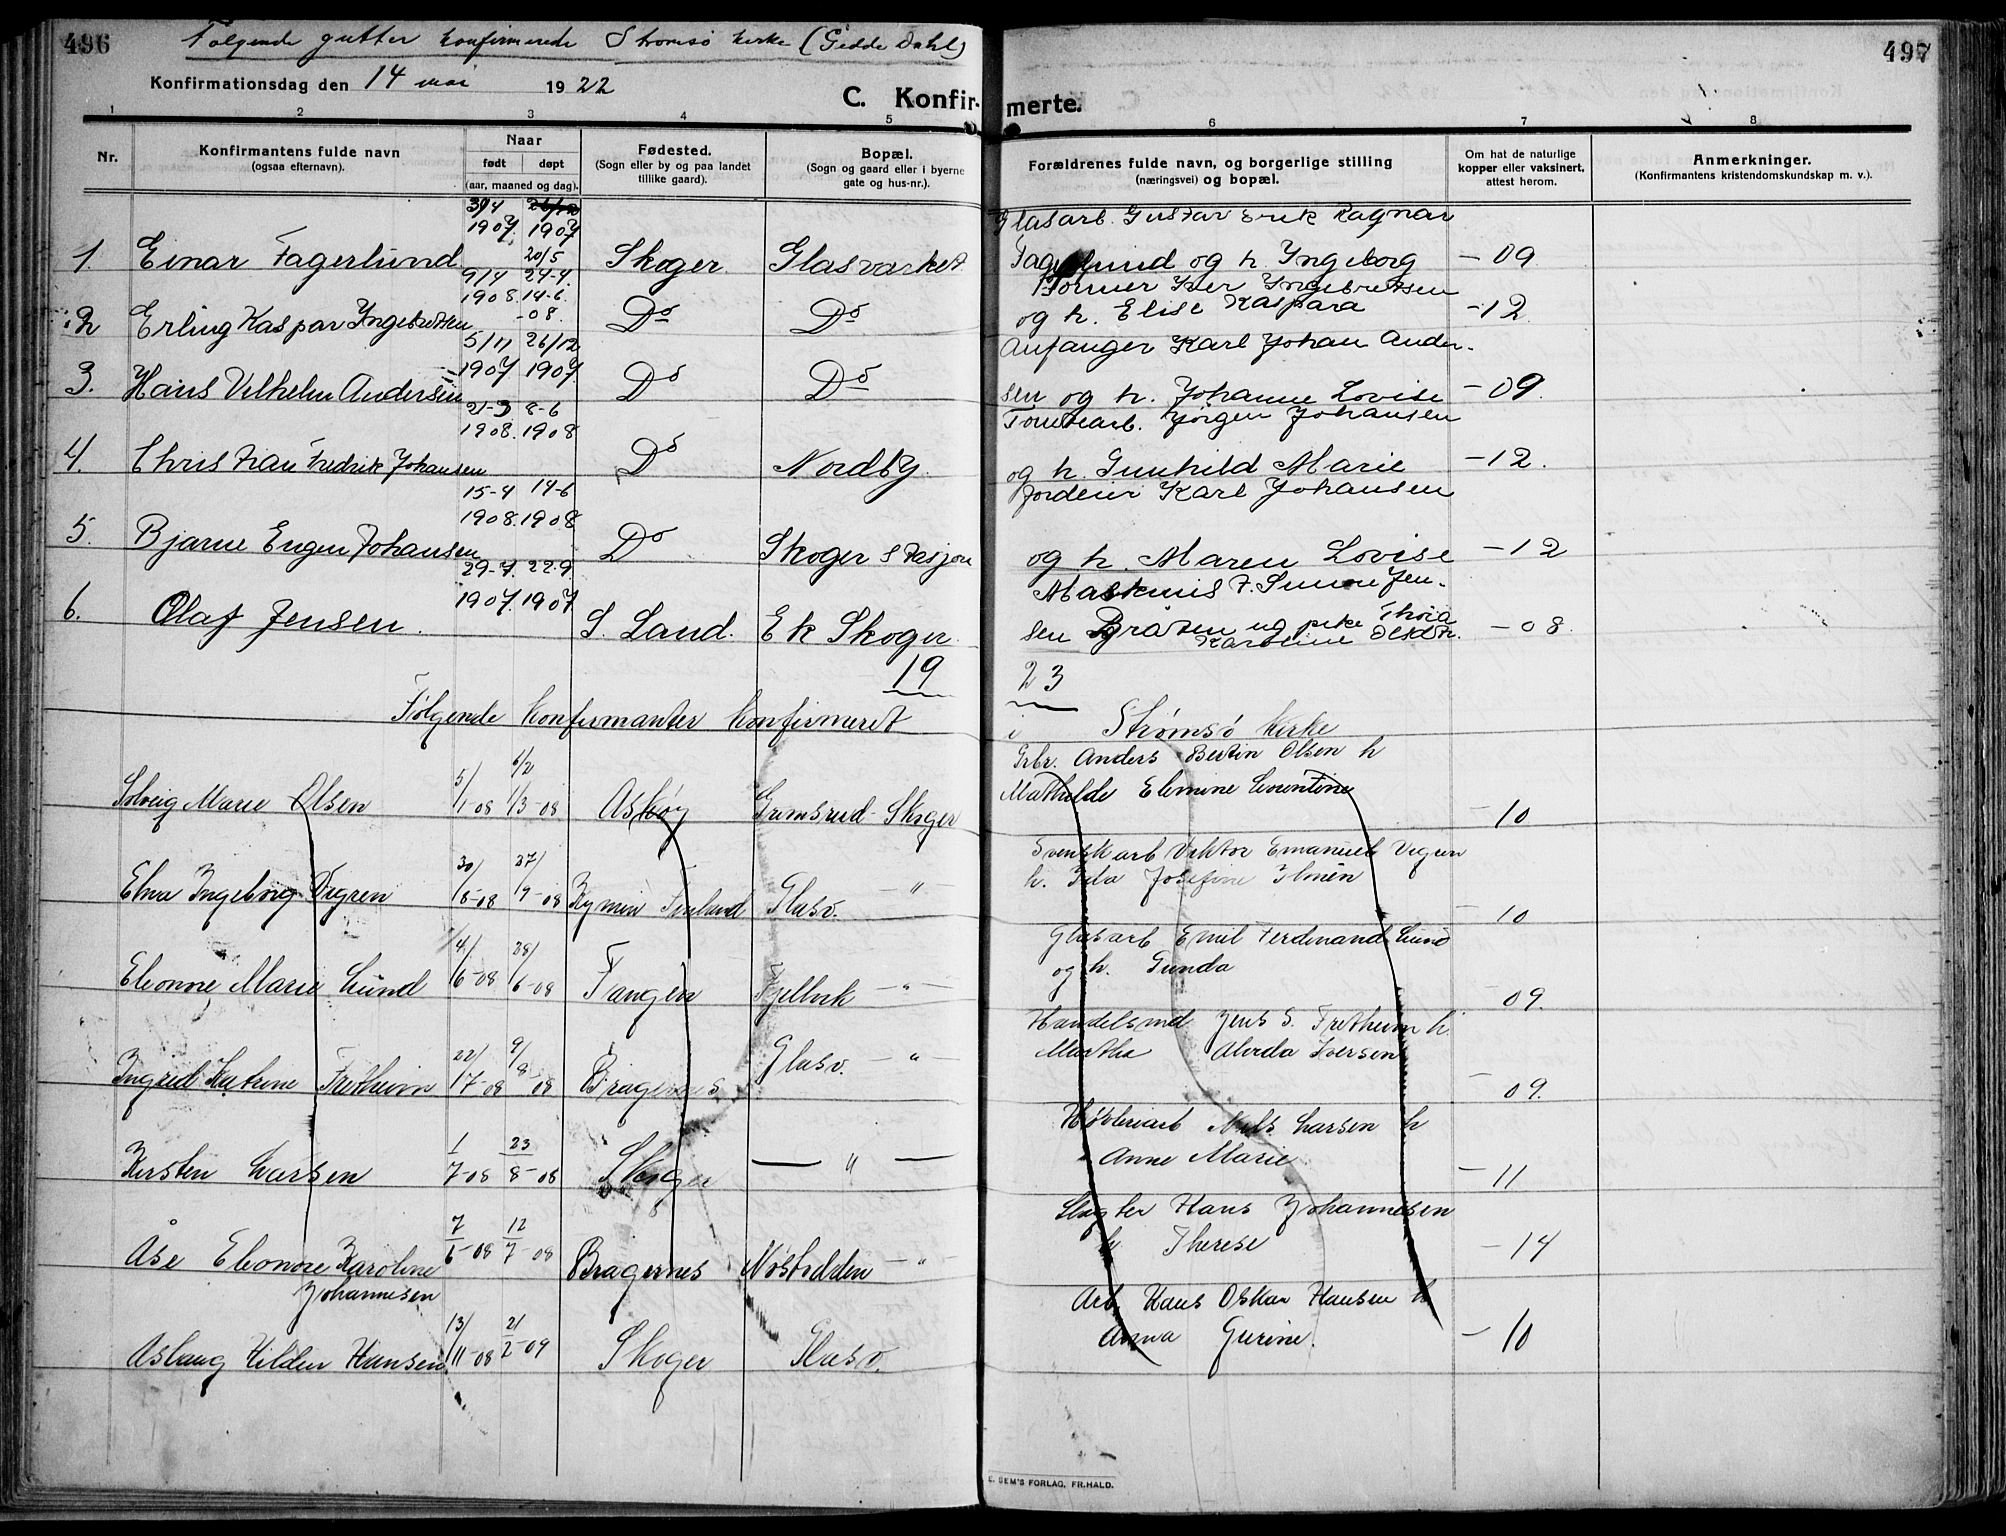 496
Følgende gutter konfirmerede Strømsø kirke (Gedde Dahl)
Konfirmationsdag den 14 mai 1922
C. Konfir-
1 2 3 4 5
Nr.
Konfirmantens fulde navn
(ogsaa efternavn).
Naar
født døpt
(aar, maaned og dag).
Fødested.
(Sogn eller by og paa landet
tillike gaard).
Bopæl.
(Sogn og gaard eller i byerne
gate og hus-nr.).
3/4 26/12
1907 1907
20/5
1. Einar Fagerlund Skoger Glasværket
9/4 24-4
1908. 14-6
-08.
2 Erling Kaspar Ingebretsen Do Do
5/11 26/12
1907 1907
3. Hans Vilhelm Andersen Do Do
21-3 8-6
1908. 1908
4. Christian Fredrik Johansen Do Nordby
15-4 14-6
1908. 1908
5. Bjarne Eugen Johansen Do Skoger stasjon
29-7. 22-9
1907. 1907
6. Olaf Jensen. S. Land. Ek Skoger
19
Følgende konfirmanter konfirmeret
Solveig Marie Olsen 5/1-08 1/3-08 Askøy Grimsrud - Skoger
Elna Ingeborg Vigren 30/ -08 27/9-08 Kymin Finland Glasv. — " —
Eleonore Marie Lund 14/6-08 28/6-08 Tangen Fjellvik — " —
Ingrid Katrine Fretheim 22/ -08 9/8 08 Bragernes Glasv. — " —
Kirsten Larsen 1/7-08 23/8-08 Skoger — " —
Åse Eleonore Karoline 7/ -08 12/7-08 Bragernes Nøstodden — " —
Johannesen
Aslaug Hildur Hansen 13/11-08 21/2-09 Skoger Glasv.
497
merte.
6 7 8
Forældrenes fulde navn, og borgerlige stilling
(næringsvei) og bopæl.
Om hat de naturlige
kopper eller vaksinert,
attest herom.
Anmerkninger.
(Konfirmantens kristendomskundskap m. v.).
Glasarb. Gustav Erik Ragnar
Fagerlund og h. Ingeborg — 09
Former Iver Ingebretsen
og h. Elise Kaspara -12
Anfanger Karl Johan Ander-
sen og h. Johanne Lovise — 09.
Tomtearb. Jørgen Johansen
og h. Gunhild Marie — 12.
Jordeier Karl Johansen
og h. Maren Lovise — 12
Maskinist. Simon Jen-
sen Bråten og pike Thora
Karoline Olsdtr. — 08.
23
i Strømsø kirke
Grbr. Anders Bertin Olsen h
Mathilde Elemine Laurentine — 10
Svensk arb Viktor Emanuel Vigren
h. Ida Josefine Ilmén — 10
Glasarb Emil Ferdinand Lund
og h. Gunda — 09.
Handelsmd Jens S. Fretheim h.
Martha Alvida Iversen — 09.
Høvleriarb Nils Larsen h
Anne Marie — 11
Slagter Hans Johannesen
h. Therese — 14
Arb. Hans Oskar Hansen h
Anna Gurine. — 10
E. SEM'S FORLAG, FR.HALD.